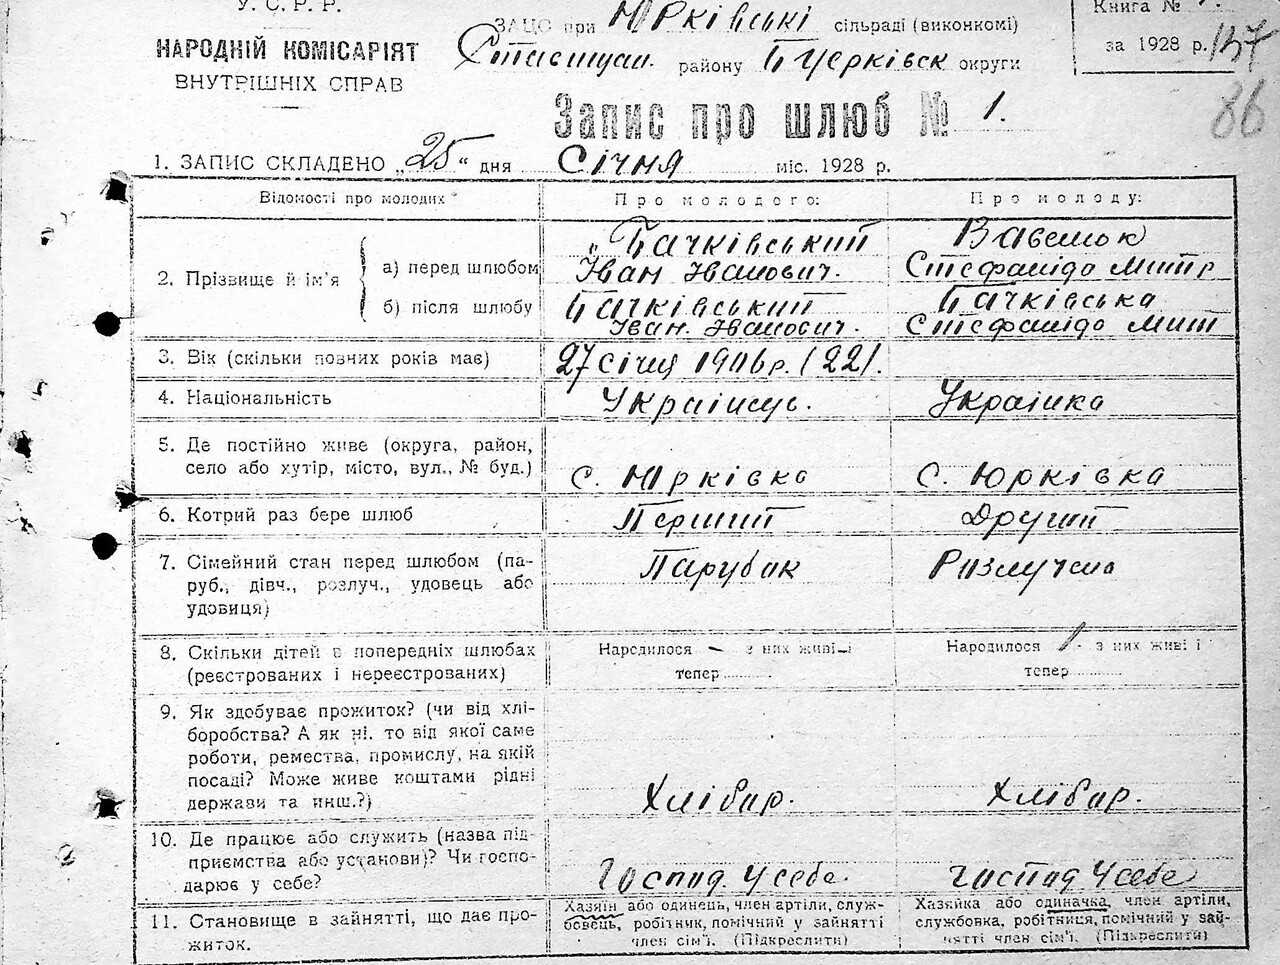 У. С. Р. Р.
НАРОДНІЙ КОМІСАРІЯТ
ВНУТРІШНІХ СПРАВ
ЗАЦС при Юрківські сільраді (виконкомі)
району Б Церківск округи
Книга №
за 1928 р. 137
86
Запис про шлюб № 1.
1. ЗАПИС СКЛАДЕНО „25“ дня Січня міс. 1928 р.
Відомості про молодих
Про молодого:
Про молоду:
2. Прізвище й ім'я
а) перед шлюбом
Бачківський
Іван Іванович.
Стефанида Митр
б) після шлюбу
Бачківський
Іван. Іванович.
Бачківська
Стефанида Мит
3. Вік (скільки повних років має)
27 січня 1906 р. (22).
4. Національність
Українець.
Українка
5. Де постійно живе (округа, район,
село або хутір, місто, вул., № буд.)
с. Юрківка
с. Юрківка
6. Котрий раз бере шлюб
Перший
Другий
7. Сімейний стан перед шлюбом (па-
руб., дівч., розлуч., удовець або
удовиця)
Парубок
Разлучена
8. Скільки дітей в попередніх шлюбах
(реєстрованих і нереєстрованих)
Народилося — з них живі
тепер
Народилося 1 - з них живі
тепер
9. Як здобуває прожиток? (чи від хлі-
боробства? А як ні, то від якої саме
роботи, ремества, промислу, на якій
посаді? Може живе коштами рідні
держави та инш.?)
Хлібор.
Хлібор.
10. Де працює або служить (назва під-
приємства або установи)? Чи госпо-
дарює у себе?
Господ. у себе.
господ у себе
11. Становище в зайнятті, що дає про-
житок.
Хазяїн або одинець, член артіли, служ-
бовець, робітник, помічний у зайнятті
член сім'ї. (Підкреслити)
Хазяйка або одиначка, член артіли,
службовка, робітниця, помічний у зай-
нятті член сім'ї. (Підкреслити)